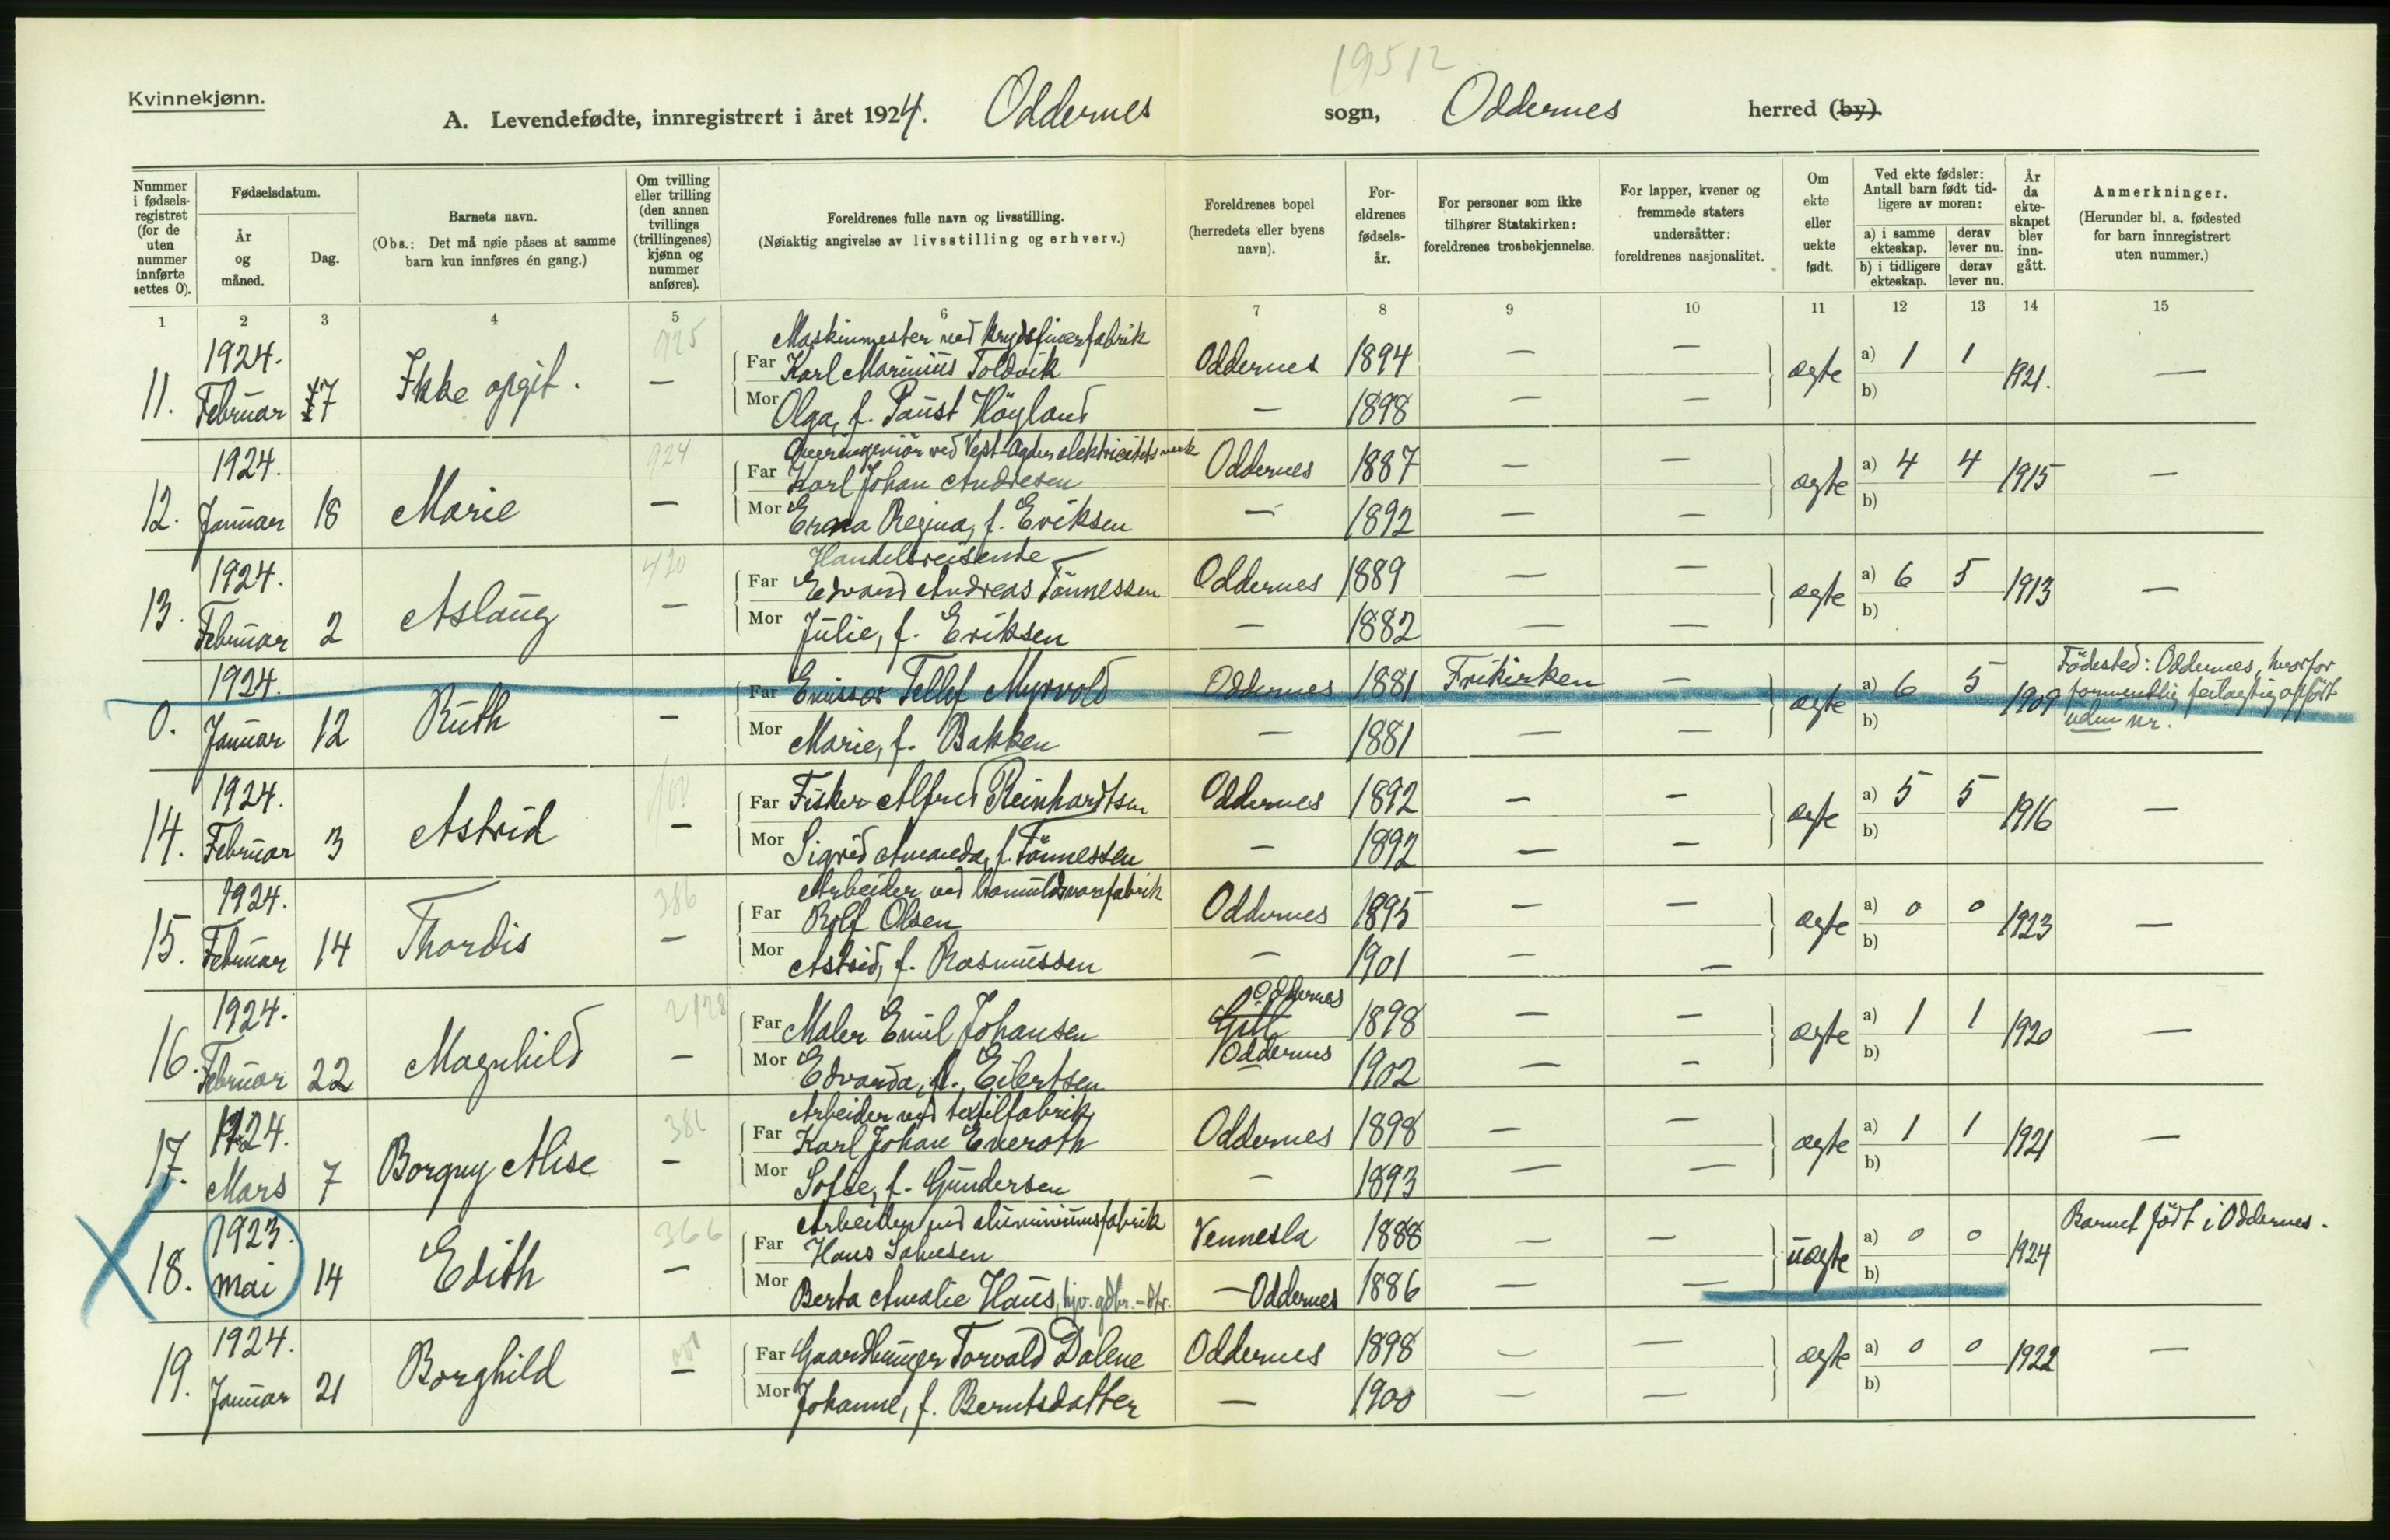 19512
Kvinnekjønn.
A. Levendefødte, innregistrert i året 1924. Oddernes sogn, Oddernes herred (by).
Nummer i fødsels-registret (for de uten nummer innførte settes 0).
Fødselsdatum.
År og måned.
Dag.
Barnets navn.
(Obs.: Det må nøie påses at samme barn kun innføres én gang.)
Om tvilling eller trilling (den annen tvillings (trillingenes) kjønn og nummer anføres).
Foreldrenes fulle navn og livsstilling.
(Nøiaktig angivelse av livsstilling og erhverv.)
Foreldrenes bopel (herredets eller byens navn).
For-eldrenes fødsels-år.
For personer som ikke tilhører Statskirken: foreldrenes trosbekjennelse.
For lapper, kvener og fremmede staters undersåtter: foreldrenes nasjonalitet.
Om ekte eller uekte født.
Ved ekte fødsler: Antall barn født tid-ligere av moren:
a) i samme ekteskap. derav lever nu.
b) i tidligere ekteskap. derav lever nu.
År da ekte-skapet blev inn-gått.
Anmerkninger.
(Herunder bl. a. fødested for barn innregistrert uten nummer.)
1 2 3 4 5 6 7 8 9 10 11 12 13 14 15
925 Maskinmester ved krydsfinerfabrik
11. 1924. Februar 17 Ikke opgit. — Far Karl Marinius Toldvik Oddernes 1894 — — ægte a) 1 1 1921. —
Mor Olga, f. Paust Høyland — 1898 — — b)
924 Overingeniør ved Vest-Agder elektricitetsverk
12. 1924. Januar 18 Marie — Far Karl Johan Andresen Oddernes 1887 — — ægte a) 4 4 1915 —
Mor Erna Regina, f. Eriksen — 1892 — — b)
420 Handelsreisende
13. 1924. Februar 2 Aslaug — Far Edvard Andreas Tönnessen Oddernes 1889 — — ægte a) 6 5 1913 —
Mor Julie, f. Eriksen — 1882 — — b)
0. 1924. Januar 12 Ruth — Far Emissær Tellef Myrvold Oddernes 1881 Frikirken — ægte a) 6 5 1909 Födested: Oddernes, hvorfor formentlig feilagtig opført uden nr.
Mor Marie, f. Bakken — 1881 — — b)
14. 1924. Februar 3 Astrid — Far Fisker Alfred Reinhardtsen Oddernes 1892 — — ægte a) 5 5 1916 —
Mor Sigrid Amanda, f. Tönnessen — 1892 — — b)
386 Arbeider ved bomuldsvarefabrik
15. 1924. Februar 14 Thordis — Far Rolf Olsen Oddernes 1895 — — ægte a) 0 0 1923 —
Mor Astrid, f. Rasmussen — 1901 — — b)
2128 Oddernes
16. 1924. Februar 22 Magnhild — Far Maler Emil Johansen 1898 — — ægte a) 1 1 1920 —
Mor Edvarda, f. Eilertsen Oddernes 1902 — — b)
386 Arbeider ved textilfabrik
17. 1924. Mars 7 Borgny Alise — Far Karl Johan Eneroth Oddernes 1898 — — ægte a) 1 1 1921 —
Mor Sofie, f. Gundersen — 1893 — — b)
366 Arbeider ved aluminiumsfabrik
18. 1923. mai 14 Edith — Far Hans Salvesen Vennesla 1888 — — uægte a) 0 0 1924 Barnet född i Oddernes.
Mor Berta Amalie Haus, hjv. gdbr.-dtr. — Oddernes 1886 — — b)
19. 1924. Januar 21 Borghild — Far Gaardbruger Torvald Dalene Oddernes 1898 — — ægte a) 0 0 1922 —
Mor Johanne, f. Berntsdatter — 1900 — — b)